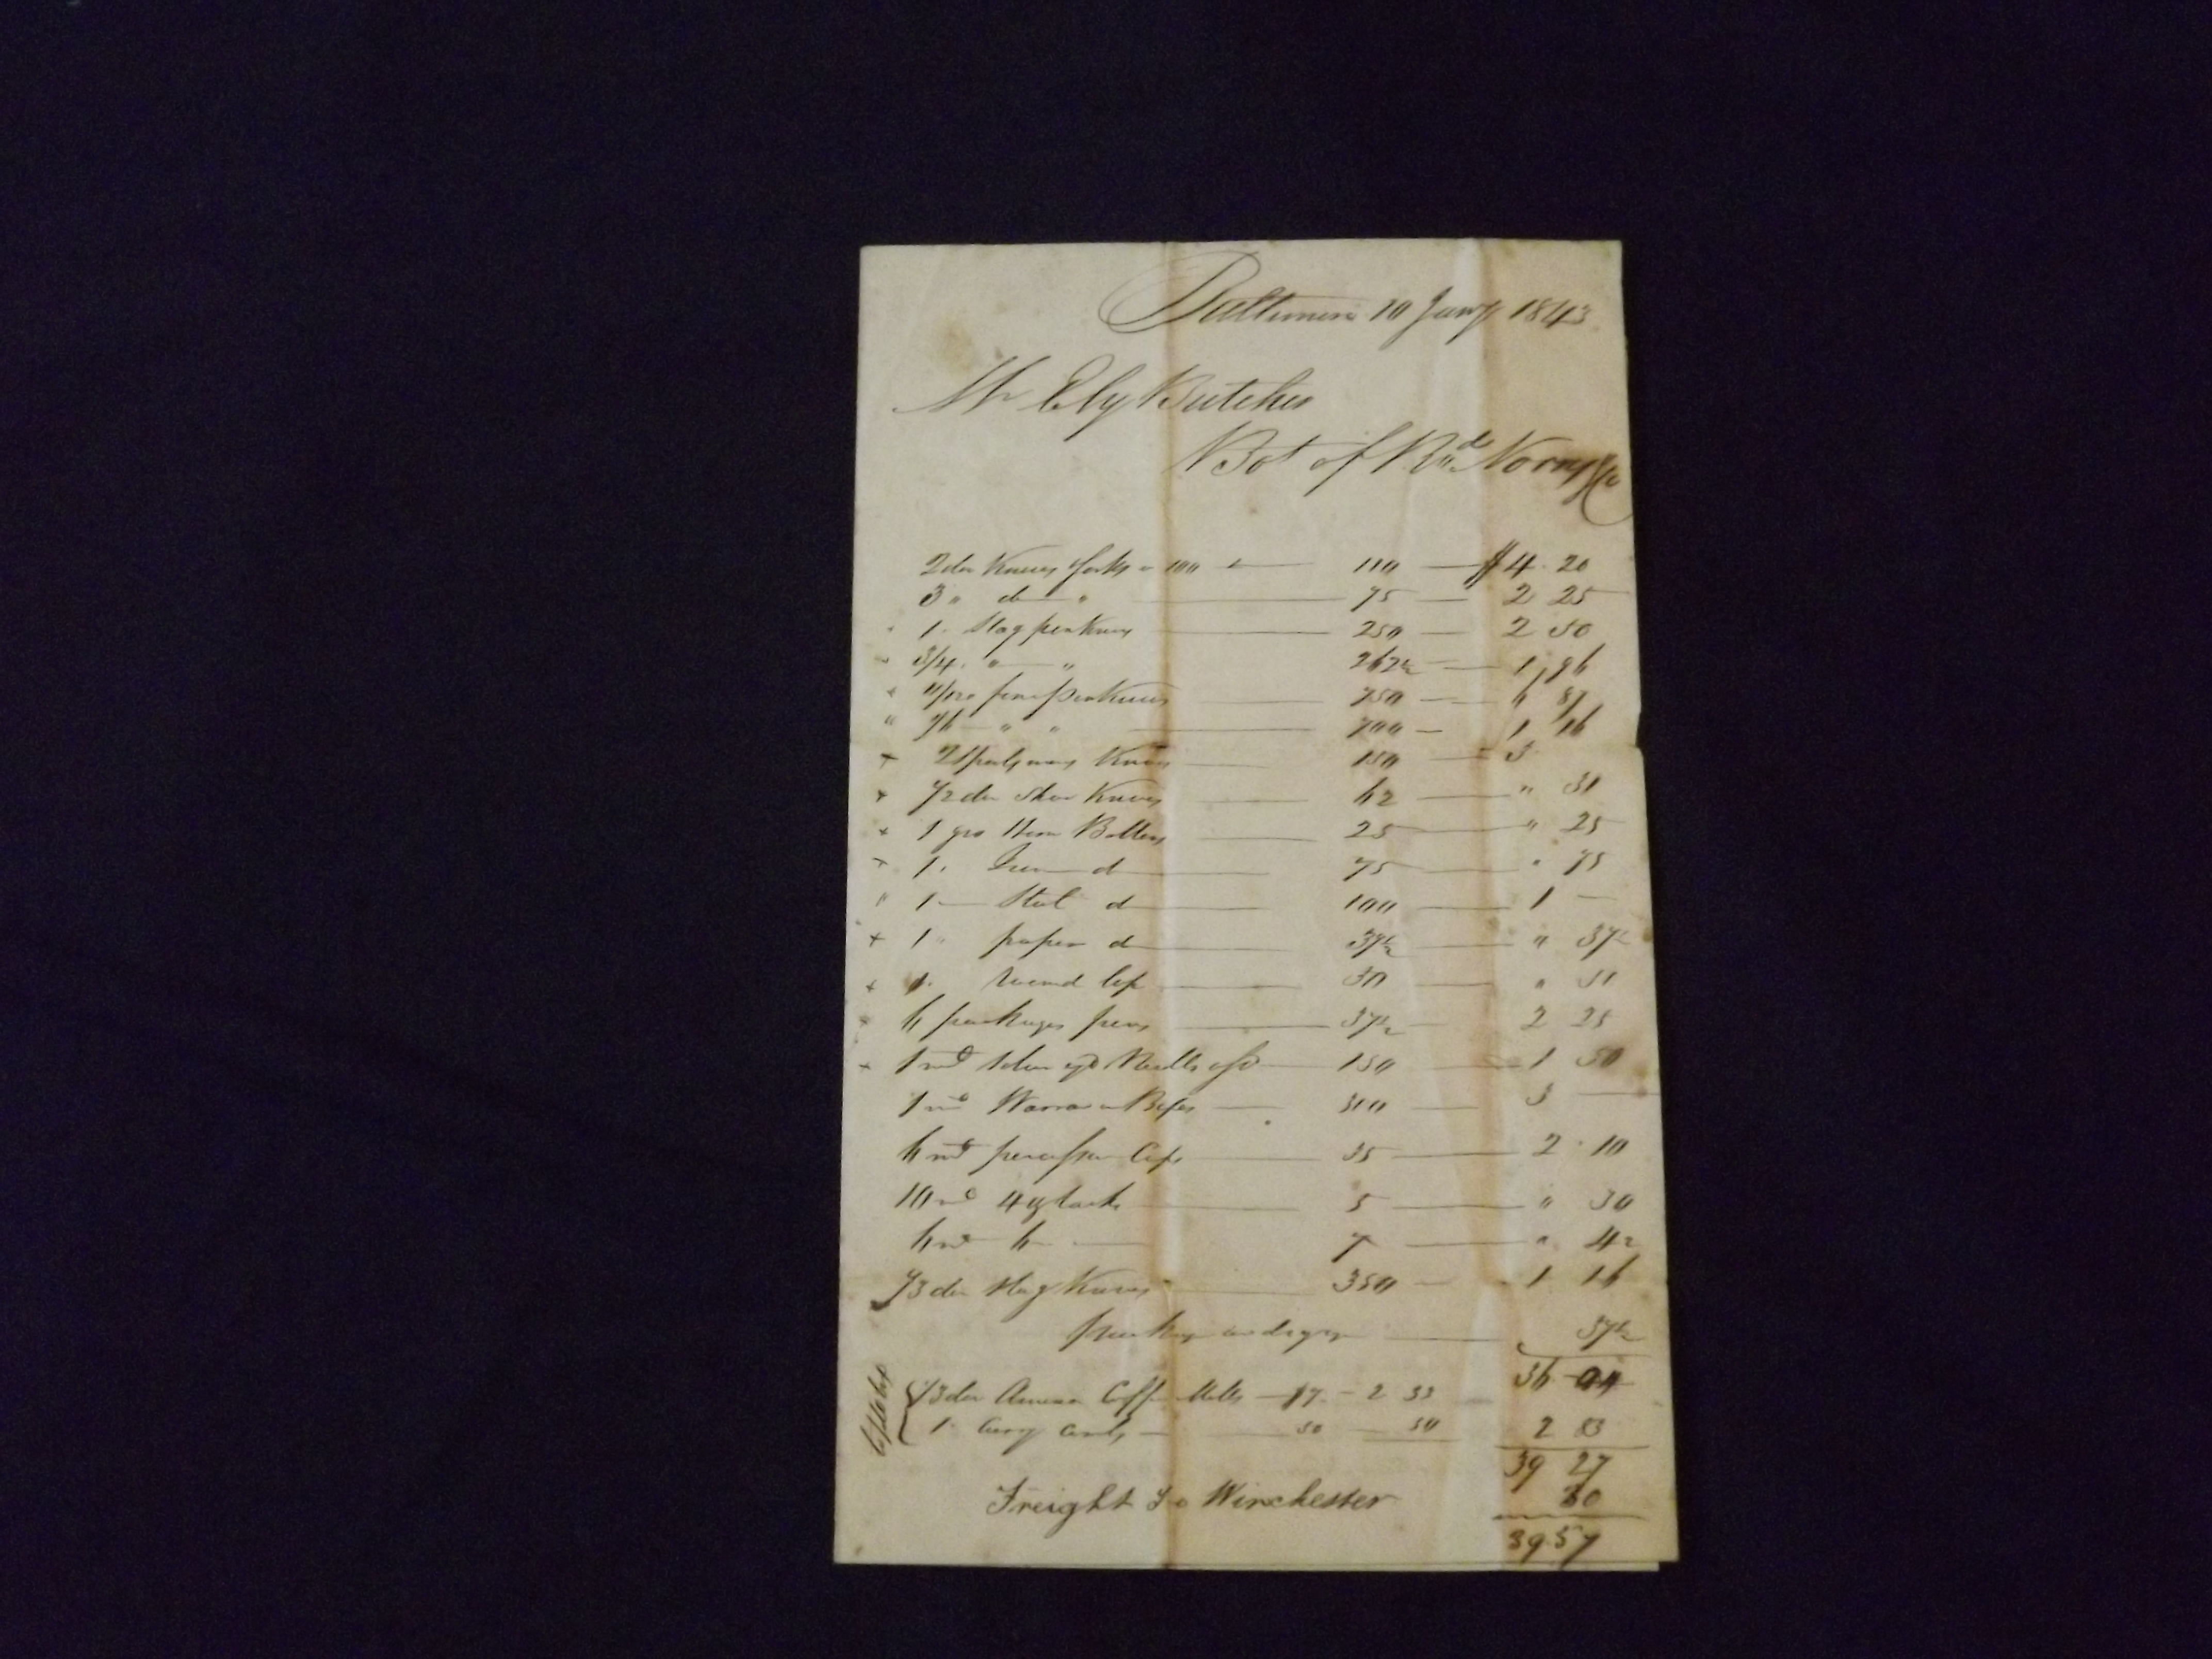 Baltimore 10 Jany 1843
Mr Ely Butcher
Bot of Rd Norris & Co
2 doz Knives & forks - 100 & 110 $4.20
3 " do " 75 2 25
1 " Stag penknives 250 2 50
3/4 " " 262½ 1,96
11/12 fine penKnives 750 6 87
1/6 " " 700 1 16
2 Sportsmans Knives 150 3
1/2 doz Shoe Knives 62 " 31
1 gro Horn Buttons 25 " 25
1 " do 75 " 75
1 Steel do 100 1 —
1 " paper do 37½ " 37½
1 " 30 " 30
6 packages pins 37½ 2 25
1 md Needles 150 1 50
1 md 300 3 —
6 md percussion Caps 35 2.10
10 md 4 oz tacks 5 " 50
6 md 6 7 " 42
1/3 doz Stag Knives 350 1 16
37½
36
1/3 doz Coffee Mills 7. - 2 33
1 " Curry Combs 50 50 2 83
39 27
Freight to Winchester 30
39.57